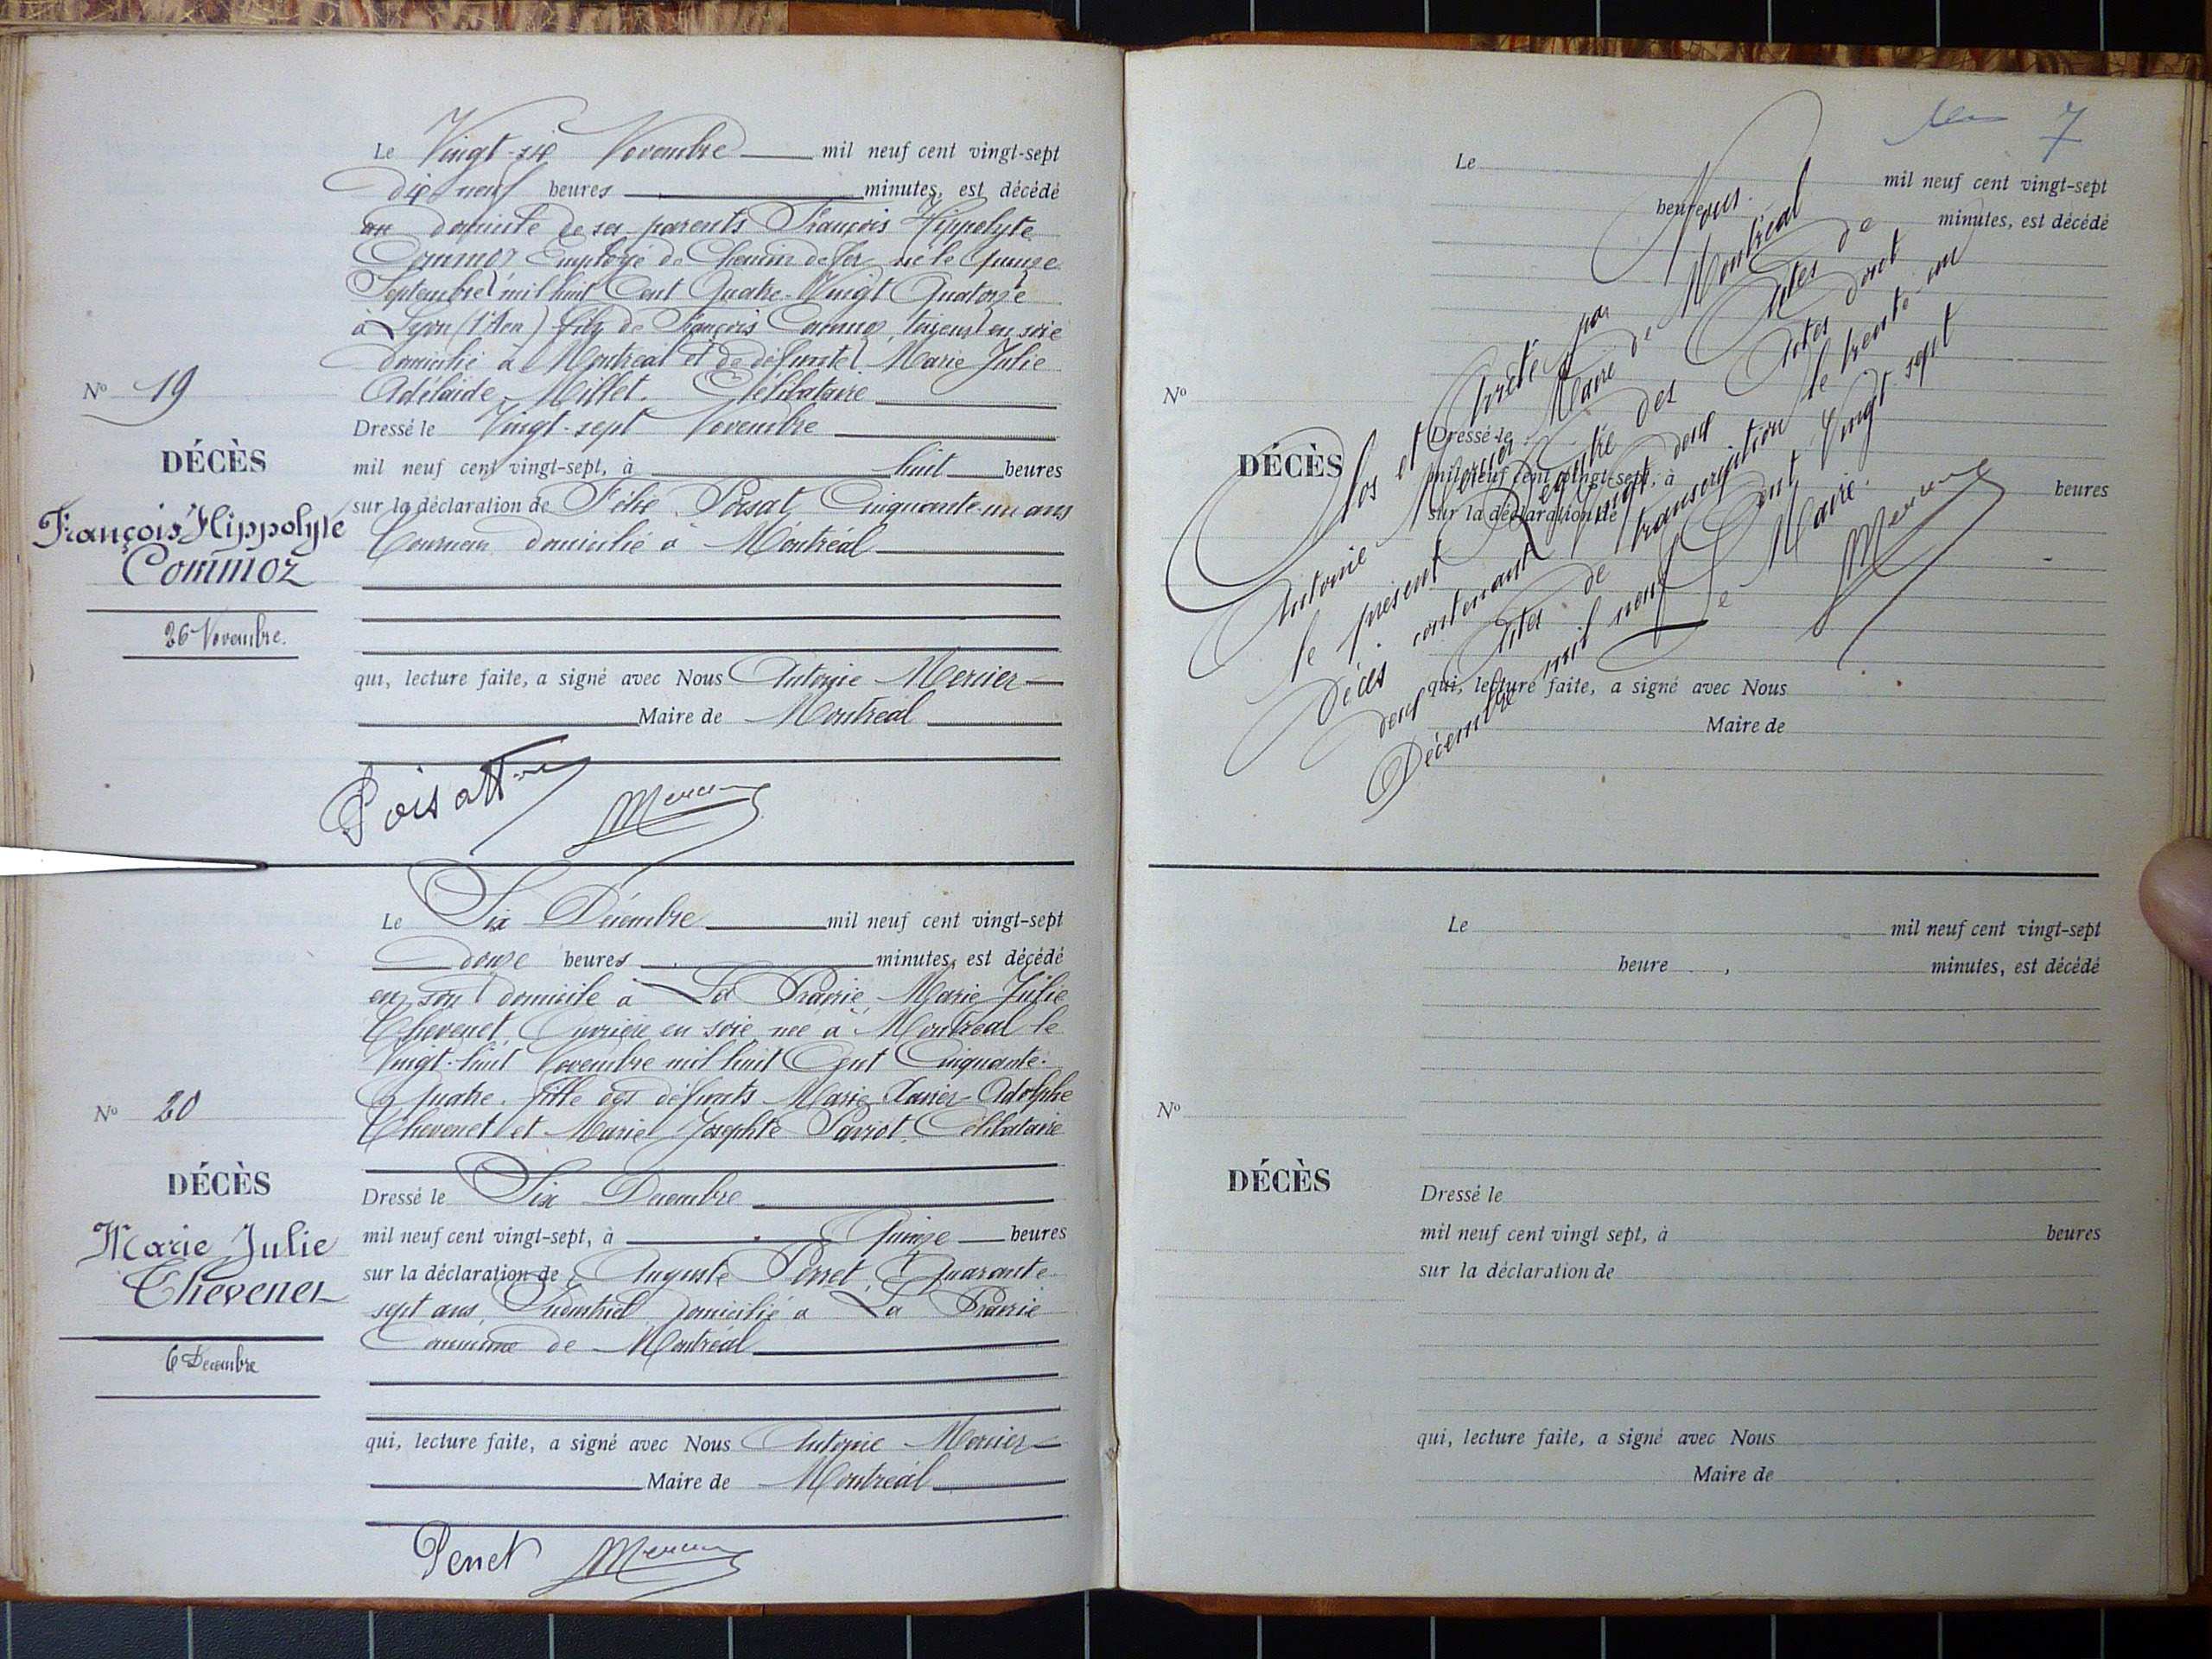 Le Vingt-six Novembre mil neuf cent vingt-sept
dix neuf heures minutes, est décédé
au domicile de ses parents François Hippolyte
Commoz Employé de Chemin de fer, né le quinze
Septembre mil huit Cent Quatre-Vingt Quatorze
à Lyon fils de François Commoz, tisseur en soie
domicilié à Montréal et de défunte Marie Julie
Adélaïde Millet. Célibataire
Dressé le Vingt-sept Novembre
mil neuf cent vingt-sept, à huit heures
sur la déclaration de Cinquante-un ans
domicilié à Montréal
qui, lecture faite, a signé avec Nous Antonie Mercier
Maire de Montréal
Nº 19
DÉCÈS
François Hippolyte
Commoz
26 Novembre.
Poisat
Mercier
Le Six Décembre mil neuf cent vingt-sept
douze heures minutes, est décédé
en son domicile à La Prairie Marie Julie
Chevenet, Ouvrière en soie née à Montréal le
Vingt-huit Novembre mil huit Cent Cinquante-
Quatre. fille des défunts Marie Xavier Adolphe
Chevenet et Marie Josephte Parrot. Célibataire
Dressé le Six Décembre
mil neuf cent vingt-sept, à Quinze heures
sur la déclaration de Auguste Perret, Quarante
sept ans, Industriel domicilié à La Prairie
Commune de Montréal
qui, lecture faite, a signé avec Nous Antonie Mercier
Maire de Montréal
Nº 20
DÉCÈS
Marie Julie
Chevenet
6 Décembre
Perret
Mercier
7
Le mil neuf cent vingt-sept
heure minutes, est décédé
Nº
DÉCÈS
Dressé le
mil neuf cent vingt-sept, à heures
sur la déclaration de
qui, lecture faite, a signé avec Nous
Maire de
Clos et Arrêté par Nous.
Antonie Mercier Maire de Montréal
le présent Registre des Actes de
Décès contenant vingt deux Actes dont
deux Actes de transcription le trente-un
Décembre mil neuf Cent Vingt sept
Le Maire.
Mercier
Le mil neuf cent vingt-sept
heure , minutes, est décédé
Nº
DÉCÈS
Dressé le
mil neuf cent vingt sept, à heures
sur la déclaration de
qui, lecture faite, a signé avec Nous
Maire de